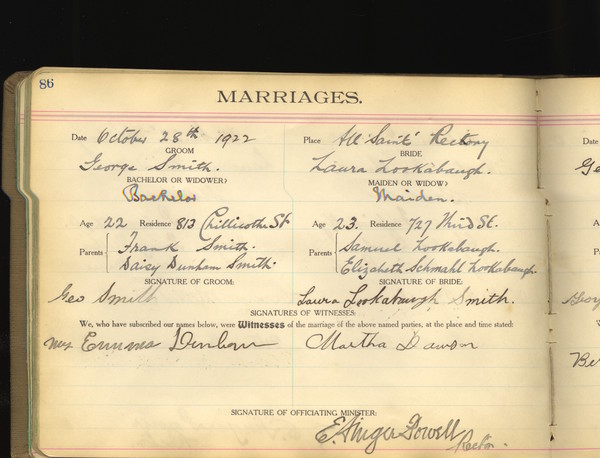 86
MARRIAGES.
Date October 28th 1922 Place All Saints' Rectory
GROOM BRIDE
George Smith. Laura Lookabaugh.
BACHELOR OR WIDOWER? MAIDEN OR WIDOW?
Bachelor Maiden.
Age 22 Residence 813 Chillicothe St Age 23. Residence 727 Third St.
Parents Frank Smith. Parents Samuel Lookabaugh.
Daisy Dunham Smith. Elizabeth Schmahl Lookabaugh.
SIGNATURE OF GROOM: SIGNATURE OF BRIDE:
Geo Smith Laura Lookabaugh Smith.
SIGNATURES OF WITNESSES:
We, who have subscribed our names below, were Witnesses of the marriage of the above named parties, at the place and time stated:
Mrs Emma Martha Dawson
SIGNATURE OF OFFICIATING MINISTER:
E. Ainger Powell
Rector.
Date